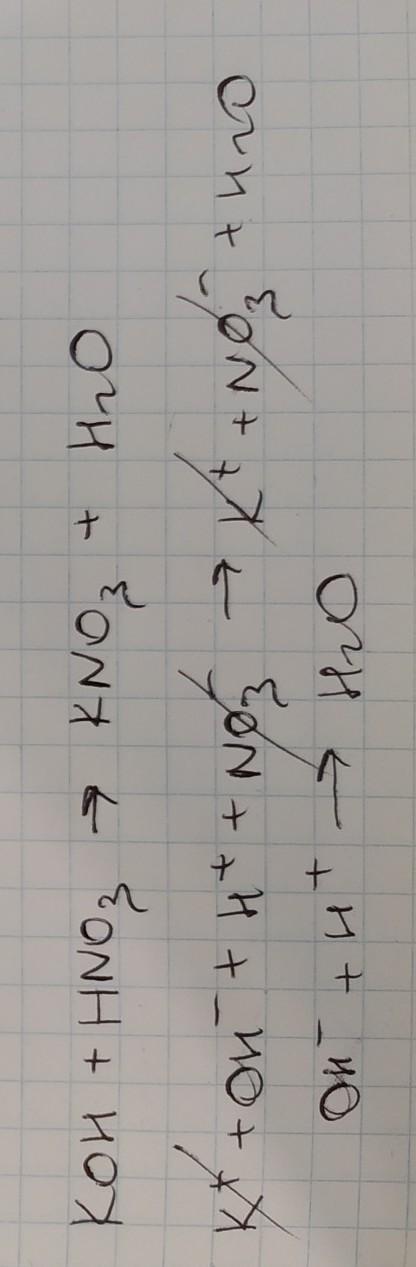 KOH + HNO₃ → KNO₃ + H₂O
K⁺ + OH⁻ + H⁺ + NO₃⁻ → K⁺ + NO₃⁻ + H₂O
OH⁻ + H⁺ → H₂O